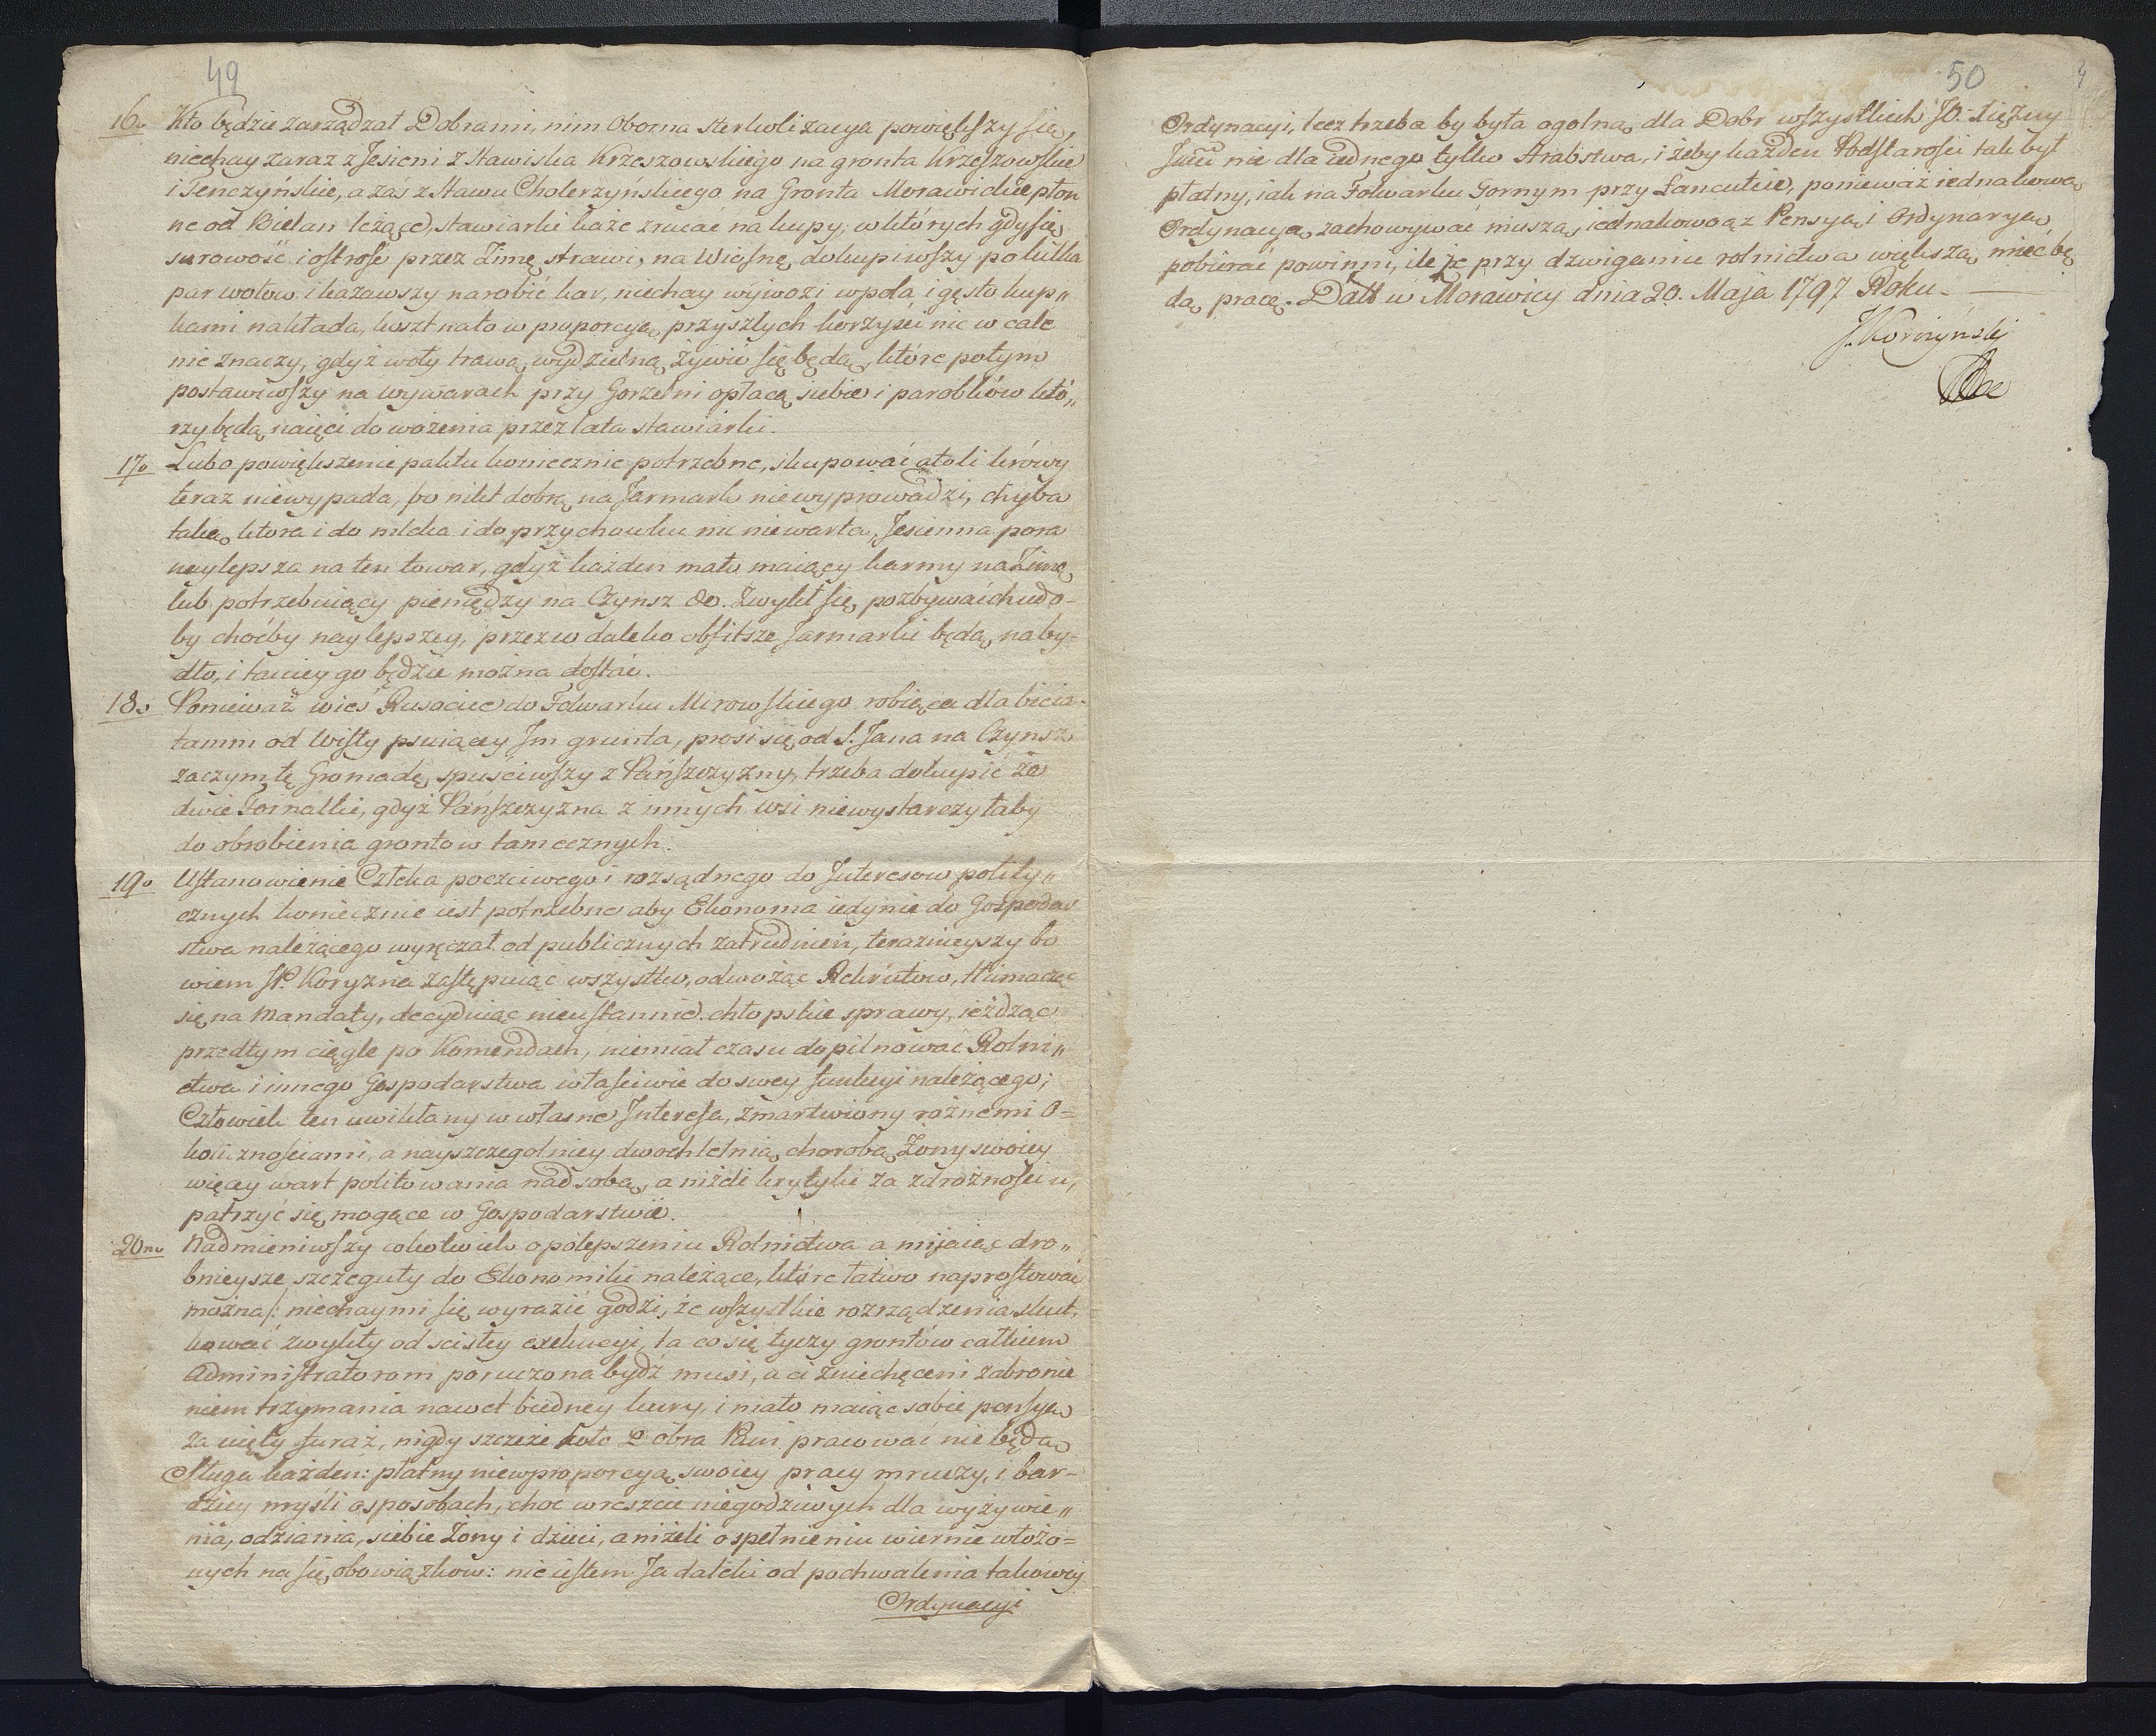 49
16o Kto będzie zarządzał Dobrami, nim Oborna sterkoli zacya powiększy się,
niechay zaraz z Jesieni z Stawiska Krzeszowskiego na gronta Krzeszowskie
i Tenczyńskie, a zaś z Stawu Cholerzyńskiego na Gronta Morawickie płon
ne od Bielan leżące, stawiarki każe zrucać na kupy; w których gdy się
surowość i ostrość przez Zimę strawi, na Wiosnę dokupiwszy po kilka
par wołow i kazawszy narobić kar, niechay wywozi w pola i gęsto kup„
kami nakłada, koszt na to w proporcyą przyszłych korzyści nic w cale
nie znaczy, gdyż woły trawą wydzielną żywić się będą, które potym
postawiwszy na wywarach przy Gorzelni opłacą siebie i parobków któ„
rzy będą naięci do wożenia przez lata stawiarki.
17o Lubo powiększenie paktu koniecznie potrzebne, skupować atoli krówy
teraz niewypada, bo nikt dobrą na Jarmark niewyprowadzi, chyba
taką, ktora i do mleka i do przychowku nic niewarta, Jesienna pora
naylepsza na ten towar, gdyż każden mało maiący karmy na Zimę,
lub potrzebuiący pieniędzy na Czynsz &c. zwykł się pozbywać chudo-
by choćby naylepszey, przez co daleko obfitsze Jarmarki będą na by-
dło, i taniey go będzie można dostać.
18o Ponieważ wieś Rusocice do Folwarku Mirowskiego robiąca dla bicia
tamm od Wisły psuiącey Im grunta, prosi się od S. Jana na Czynsz
zaczym tę Gromadę spuściwszy z Pańszczyzny, trzeba dokupić ze
dwie Fornalki, gdyż Pańszczyzna z innych wsi niewystarczyłaby
do obrobienia grontow tamecznych.
19o Ustanowienie Człeka poczciwego i rozsądnego do Interesow polity„
cznych koniecznie iest potrzebne aby Ekonoma iedynie do Gospodar
stwa należącego wyręczał od publicznych zatrudnień, teraznieyszy bo
wiem JP. Koryzna zastępuiąc wszystko, odwożąc Rekrutow, tłumacząc
się na Mandaty, decyduiąc nieustannie chłopskie sprawy, ieżdżąc
przedtym ciągle po Komendach, niemiał czasu dopilnować Rolni„
ctwa i innego Gospodarstwa właściwie do swey funkcyi należącego;
Człowiek ten uwikłany w własne Interessa, zmartwiony rożnemi O=
kolicznościami, a nayszczegolniey dwochletnią chorobą Żony swoiey
więcey wart politowania nad sobą, a niżeli krytyki za zdrożności u,
patrzyć się mogące w Gospodarstwie.
20mo Nadmieniwszy cokolwiek o polepszeniu Rolnictwa a mijaiąc dro„
bnieysze szczeguły do Ekonomiki należące, które łatwo naprostować
można/: niechay mi się wyrazić godzi, że wszystkie rozrządzenia skut,
kować zwykły od scisłey exekucyi, ta co się tyczy grontów całkiem
Administratorom poruczona bydź musi, a ci zniechęceni zabronie
niem trzymania nawet biedney kury, i mało maiąc sobie pensyą
za cięty furaż, nigdy szczeże koło Dobra Pań. pracować nie będą
Sługa każden: płatny niewproporcyą swoiey pracy mruczy, i bar-
dziey myśli o sposobach, choć wreszcie niegodziwych dla wyżywie„
nia, odziania, siebie Żony i dzieci, aniżeli o spełnieniu wiernie włożo=
nych na się obowiązkow: nie iestem Ja daleki od pochwalenia takowey
Ordynacyi
50
Ordynacyi, lecz trzeba by była ogolną dla Dobr wszystkich JO. Xiężny
Jmći nie dla iednego tylko Hrabstwa, i żeby każden Podstarości tak był
płatny, iak na Folwarku Gornym przy Łancucie, ponieważ iednakową
Ordynacyą zachowywać muszą, iednakowoąż Pensyą i Ordynaryą
pobierać powinni, ile że przy dzwiganiu rolnictwa większą mieć bę
dą pracę. Datt w Morawicy dnia 20. Maja 1797 Roku.